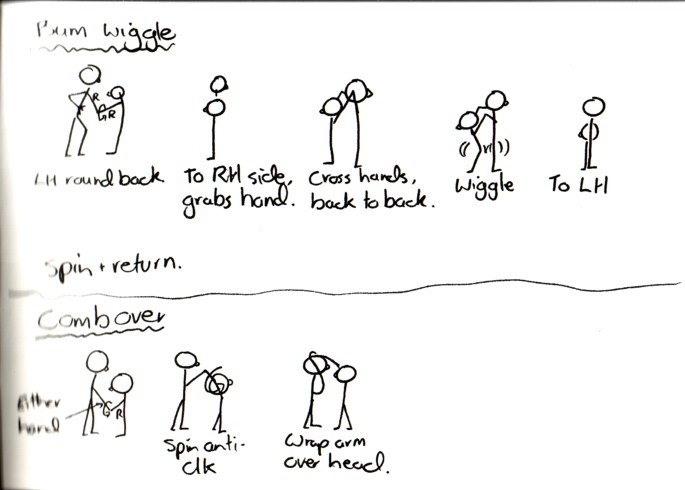 Bum Wiggle
R
R
LH round back.
To RH side,
grabs hand.
Cross hands,
back to back.
Wiggle
To LH
Spin + return.
Comb over
Either
hand
R
Spin anti-
clk
Wrap arm
over head.